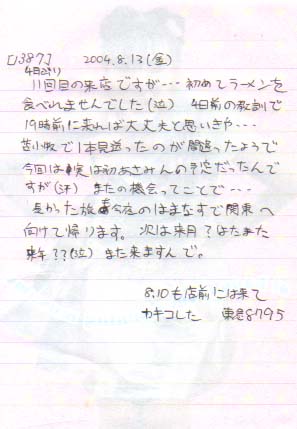 [1387] 2004.8.13(金)
4日ぶり
11回目の来店ですが--- 初めてラーメンを
食べれませんでした(泣) 4日前の教訓で
19時前に来れば大丈夫と思いきや---
苫小牧で1本見送ったのが間違ったようで
今回は実は初あさみんの予定だったんで
すが(汗) またの機会ってことで---
長かった旅も今夜のはまなすで関東へ
向けて帰ります。次は来月?はたまた
来年??(泣) また来ますんで。
8.10も店前には来て
カキコした 東急8795